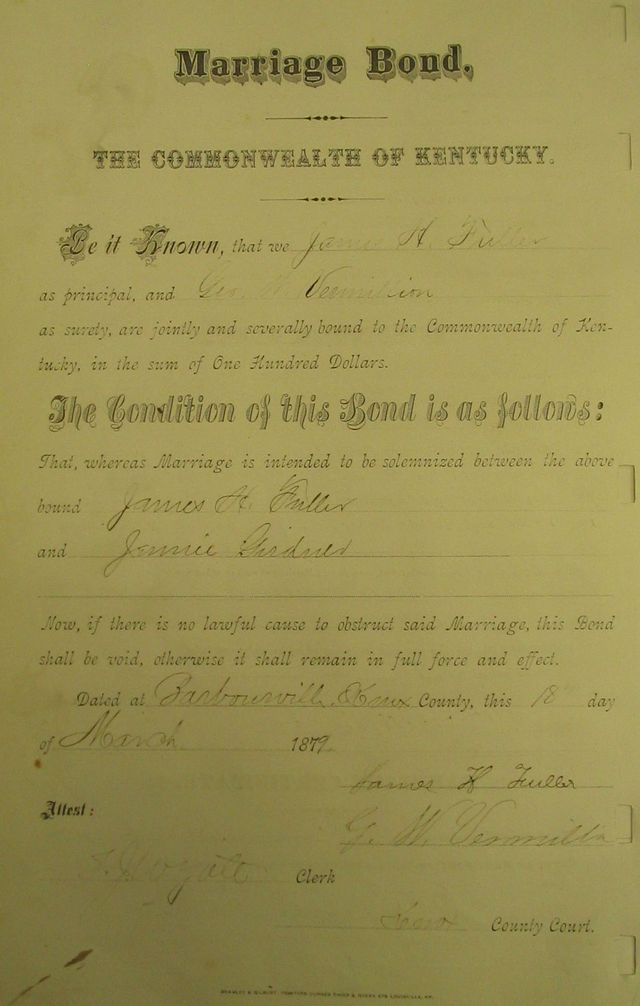 Marriage Bond.
THE COMMONWEALTH OF KENTUCKY.
Be it Known, that we James H. Fuller
as principal, and Geo. W. Vermillion
as surety, are jointly and severally bound to the Commonwealth of Ken-
tucky, in the sum of One Hundred Dollars.
The Condition of this Bond is as follows:
That, whereas Marriage is intended to be solemnized between the above
bound James H. Fuller
and Jennie Girdner
Now, if there is no lawful cause to obstruct said Marriage, this Bond
shall be void, otherwise it shall remain in full force and effect.
Dated at Barbourville Knox County, this 18 day
of March 1879.
James H Fuller
Attest:
G. W. Vermillion
Clerk
Knox County Court.